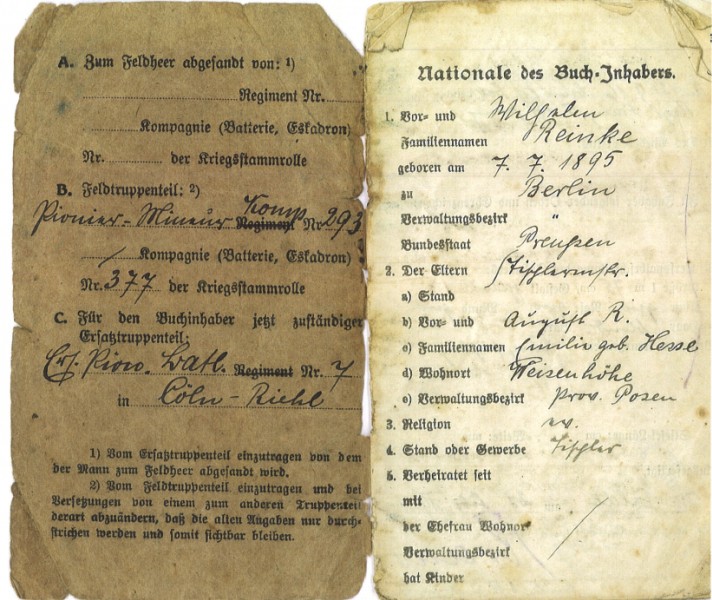 A. Zum Feldheer abgesandt von: 1)
Regiment Nr.
Kompagnie (Batterie, Eskadron)
Nr. der Kriegsstammrolle
B. Feldtruppenteil: 2)
Komp
Pionier-Mineur Regiment Nr 293
/ Kompagnie (Batterie, Eskadron)
Nr. 377 der Kriegsstammrolle
C. Für den Buchinhaber jetzt zuständiger
Ersatztruppenteil:
Ers. Pion. Batl. Regiment Nr. 7
in Cöln-Riehl
1) Vom Ersatztruppenteil einzutragen von dem
der Mann zum Feldheer abgesandt wird.
2) Vom Feldtruppenteil einzutragen und bei
Versetzungen von einem zum anderen Truppenteil
derart abzuändern, daß die alten Angaben nur durch-
strichen werden und somit sichtbar bleiben.
Nationale des Buch-Inhabers.
1. Vor- und Wilhelm
Familiennamen Reinke
geboren am 7. 7. 1895
zu Berlin
Verwaltungsbezirk "
Bundesstaat Preußen
2. Der Eltern Tischlermstr.
a) Stand
b) Vor- und August R.
c) Familiennamen Emilie geb. Hesse
d) Wohnort Weisenhöhe
e) Verwaltungsbezirk Prov. Posen
3. Religion ev.
4. Stand oder Gewerbe Tischler
5. Verheiratet seit
mit
der Ehefrau Wohnor
Verwaltungsbezirk
hat Kinder